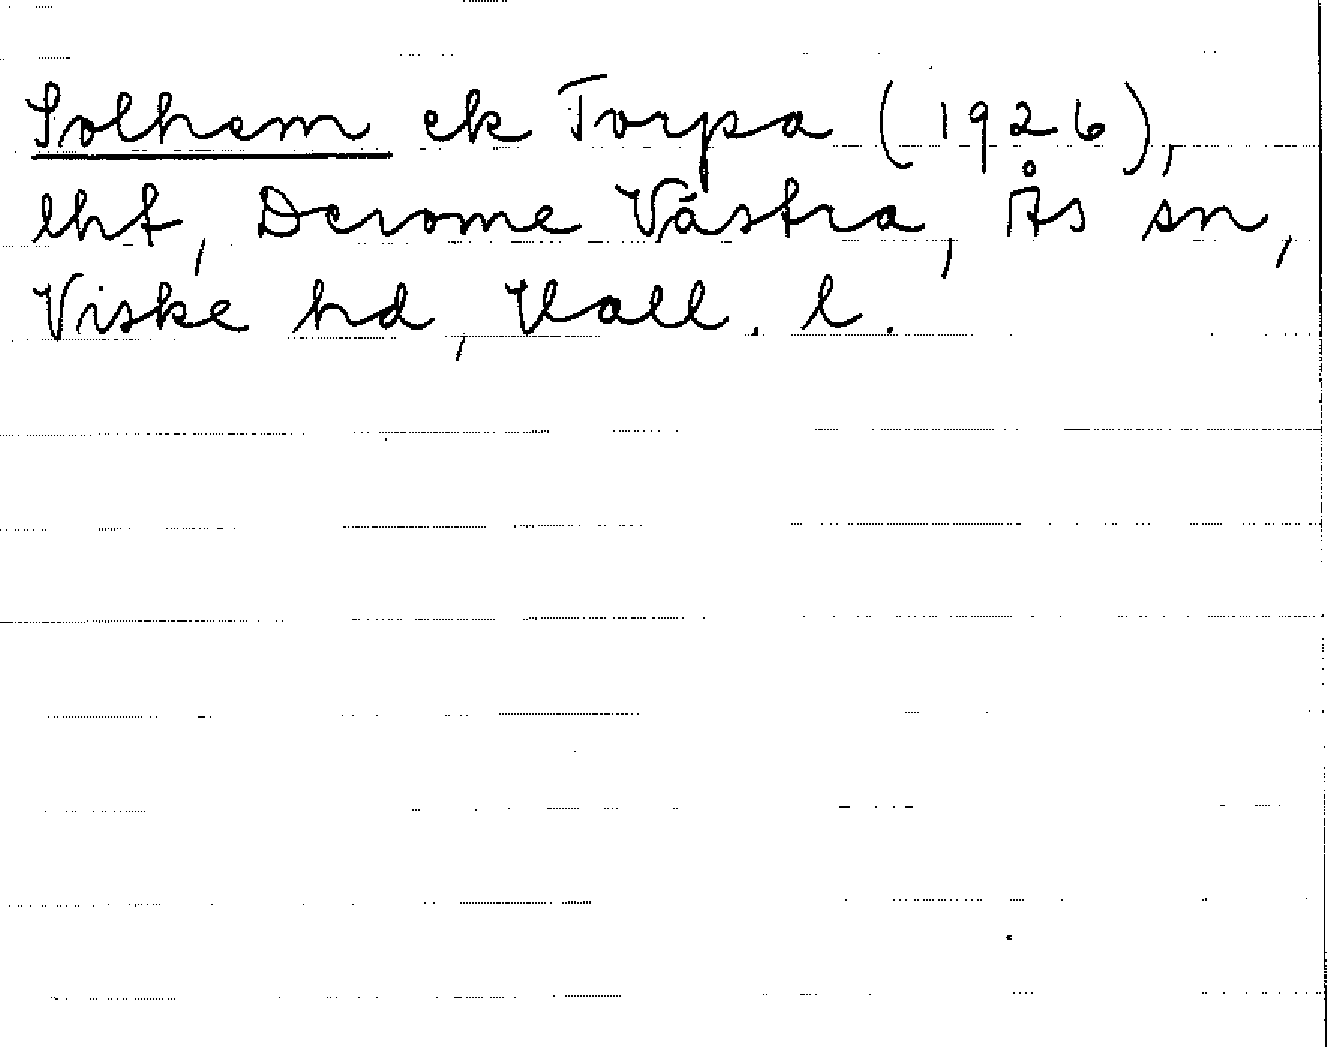 Solhem ek Torpa (1926),
lht, Derome Västra, Ås sn,
Viske hd, Hall. l.